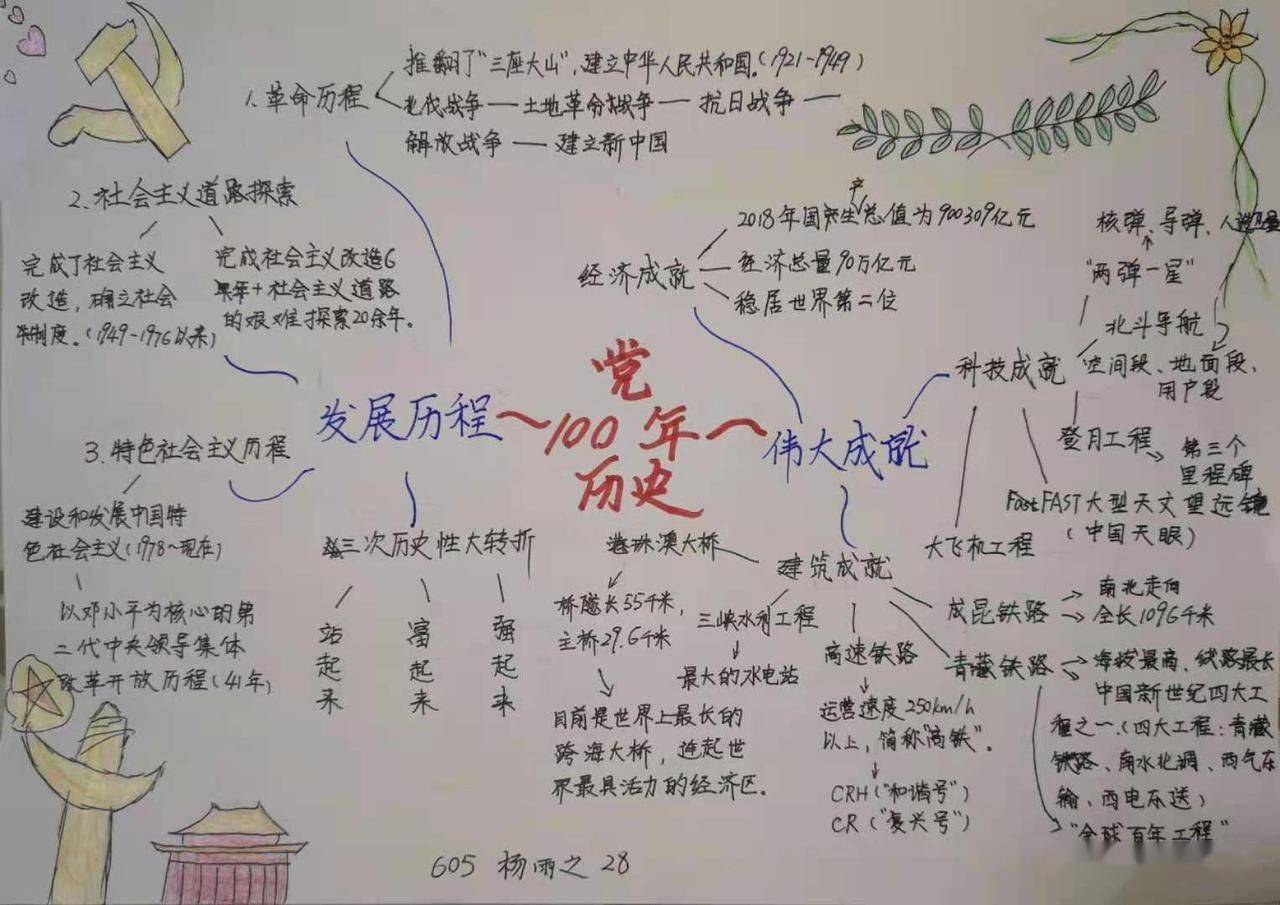 党
100年
历史
发展历程
1.革命历程
推翻了"三座大山",建立中华人民共和国。(1921-1949)
北伐战争——土地革命战争——抗日战争——
解放战争——建立新中国
2.社会主义道路探索
完成了社会主义
改造,确立社会
制度。(1949-1976以来)
完成社会主义改造6
年+社会主义道路
的艰难探索20余年。
3.特色社会主义历程
建设和发展中国特
色社会主义(1978~现在)
以邓小平为核心的第
二代中央领导集体
改革开放历程(41年)
三次历史性大转折
站起来
富起来
强起来
伟大成就
经济成就
2018年国内生产总值为900309亿元
经济总量90万亿元
稳居世界第二位
科技成就
"两弹一星"
核弹、导弹、人造卫星
北斗导航
空间段、地面段、
用户段
登月工程
第三个
里程碑
FAST大型天文望远镜
(中国天眼)
大飞机工程
建筑成就
港珠澳大桥
桥隧长55千米,
主桥29.6千米
目前是世界上最长的
跨海大桥,连起世
界最具活力的经济区.
三峡水利工程
最大的水电站
高速铁路
运营速度250km/h
以上,简称"高铁"。
CRH("和谐号")
CR("复兴号")
成昆铁路
南北走向
全长1096千米
青藏铁路
海拔最高、线路最长
中国新世纪四大工
程之一.(四大工程:青藏
铁路、南水北调、西气东
输、西电东送)
"全球百年工程"
605 杨雨之 28